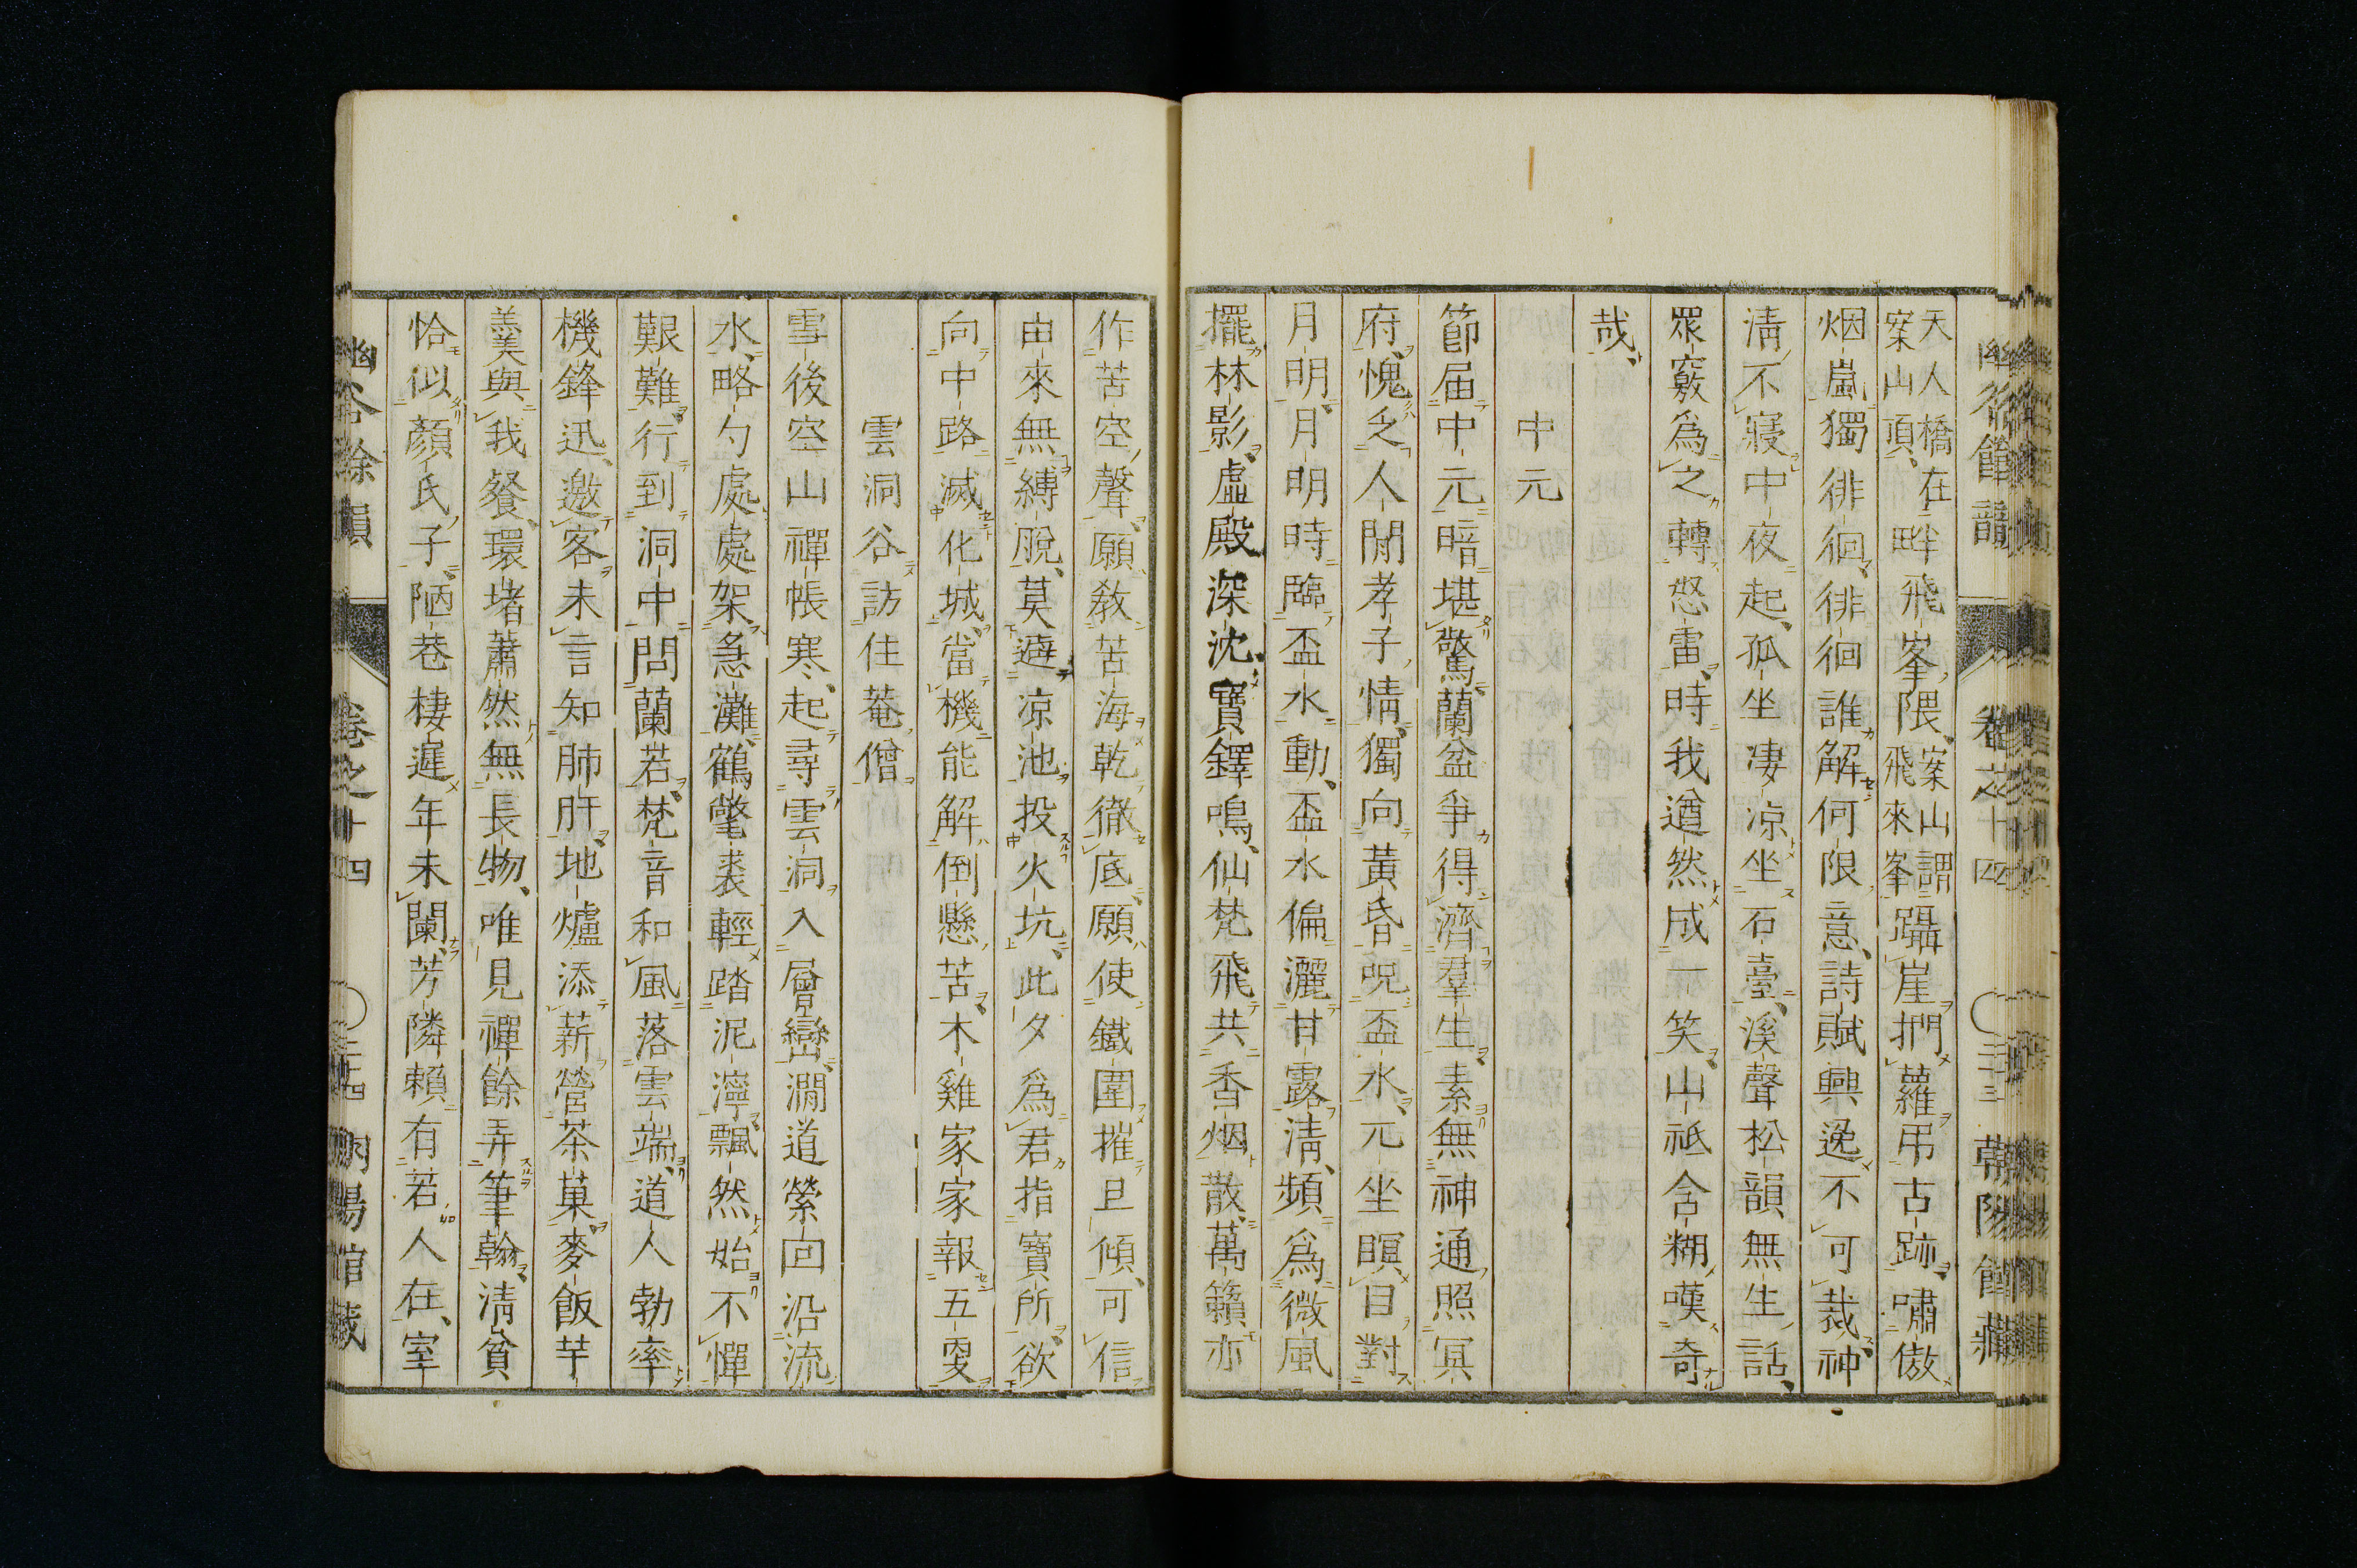 天人橋在
案山頂、畔飛峯隈、案山謂
飛來峯躡崖捫蘿弔古跡、嘯傲
烟嵐獨徘徊、徘徊誰解何限意、詩賦興逸不可裁、神
淸不寢中夜起、孤坐凄凉坐石臺、溪聲松韻無生話、
眾竅爲之轉怒雷、時我遒然成一笑、山祇含糊嘆奇
哉、
中元
節届中元暗堪驚、蘭盆爭得濟羣生、素無神通照冥
府、愧乏人間孝子情、獨向黃昏呪盃水、元坐瞑目對
月明、月明明時臨盃水動、盃水偏灑甘露淸、頻爲微風
擺林影、虛殿深沈寶鐸鳴、仙梵飛共香烟散、萬籟亦
作苦空聲、願敎苦海乾徹底、願使鐵圍摧且傾、可信
由來無縛脫、莫遊凉池投火坑、此夕爲君指寶所、欲
向中路滅化城、當機能解倒懸苦、木雞家家報五更
雲洞谷訪住菴僧
雪後空山禪帳寒、起尋雲洞入層巒、澗道縈回沿流
水、略勺處處架急灘、鶴氅裘輕踏泥濘、飄然始不憚
艱難、行到洞中問蘭若、梵音和風落雲端、道人勃率
機鋒迅、邀客未言知肺肝、地爐添薪營茶菓、麥飯芋
羹與我餐、環堵蕭然無長物、唯見禪餘弄筆翰、淸貧
恰似顏氏子、陋巷棲遲年未闌、芳隣賴有若人在、室
幽谷餘韻 卷之十四 〇三十四 朝陽館藏